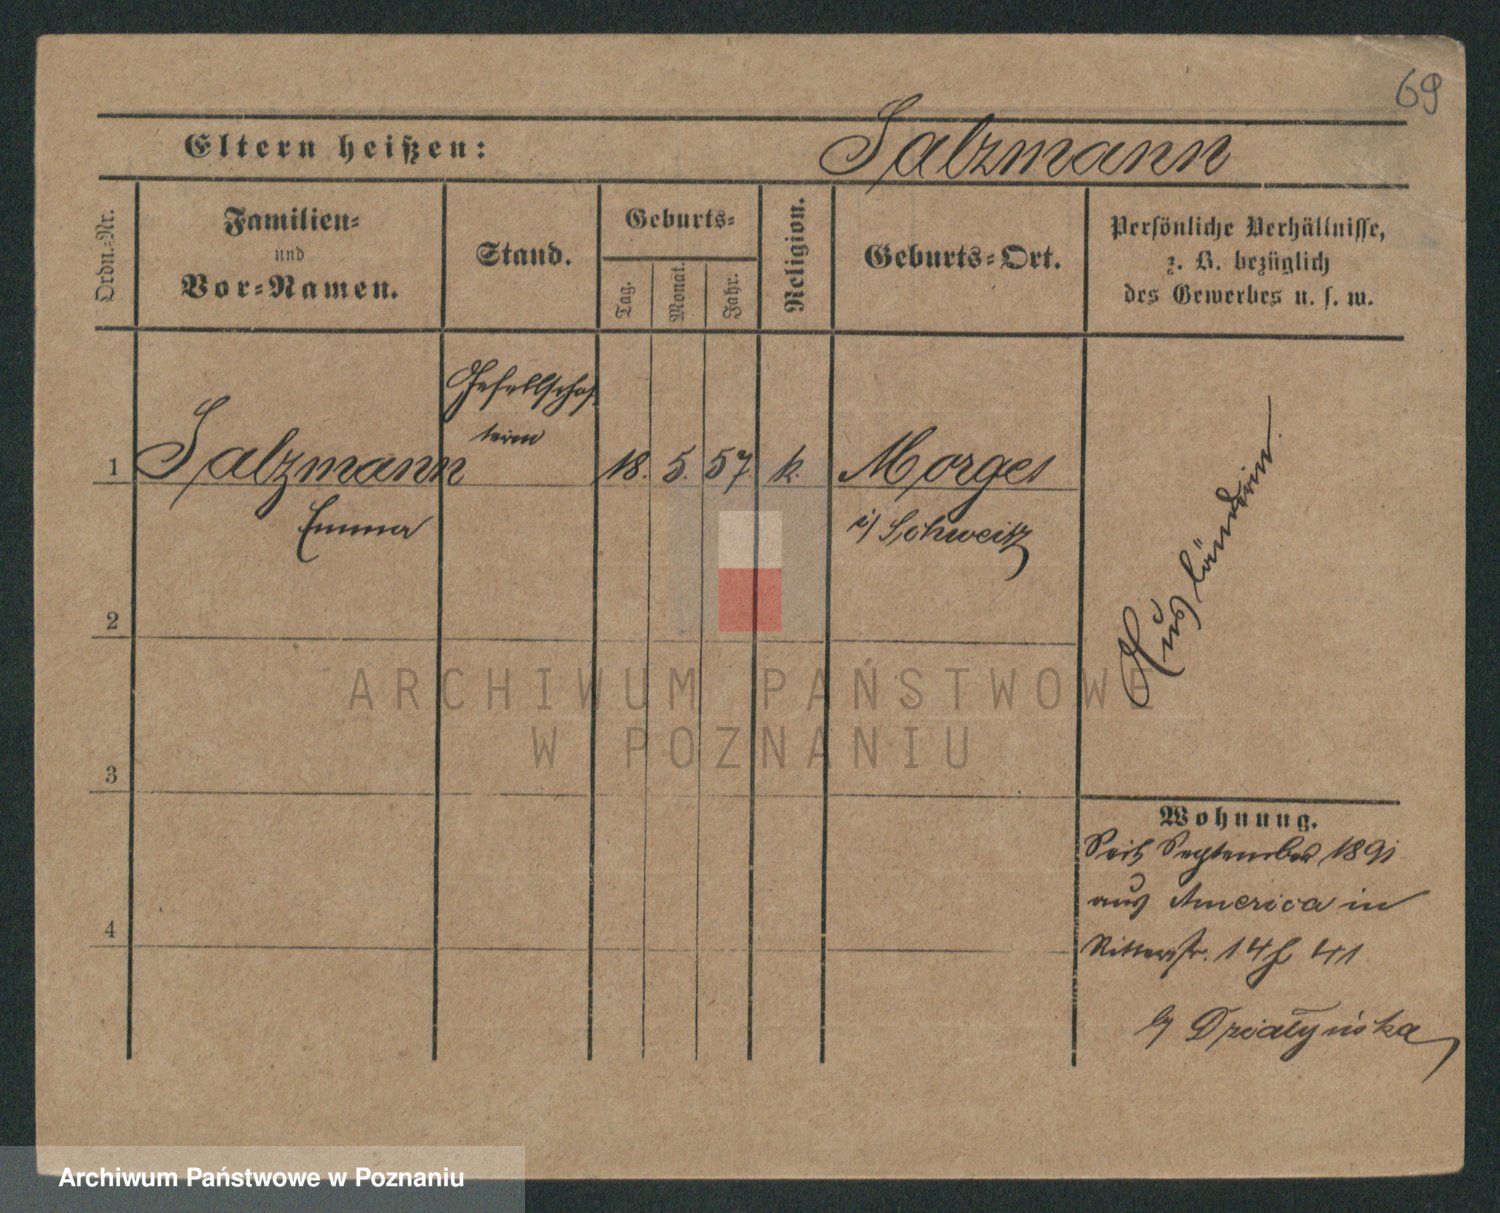 69
Eltern heißen: Salzmann
Ordn.-Nr.
Familien-
und
Vor-Namen.
Stand.
Geburts-
Tag.
Monat.
Jahr.
Religion.
Geburts-Ort.
Persönliche Verhältnisse,
z. B. bezüglich
des Gewerbes u. s. w.
Gesellschaf
terin
1 Salzmann 18. 5. 57. k. Morges
Emma i/ Schweitz
Ausländerin
2
3
4
Wohnung.
Seit September 1891
aus America in
Ritterstr. 14 41
by Działyńska
ARCHIWUM PAŃSTWOWE
W POZNANIU
Archiwum Państwowe w Poznaniu